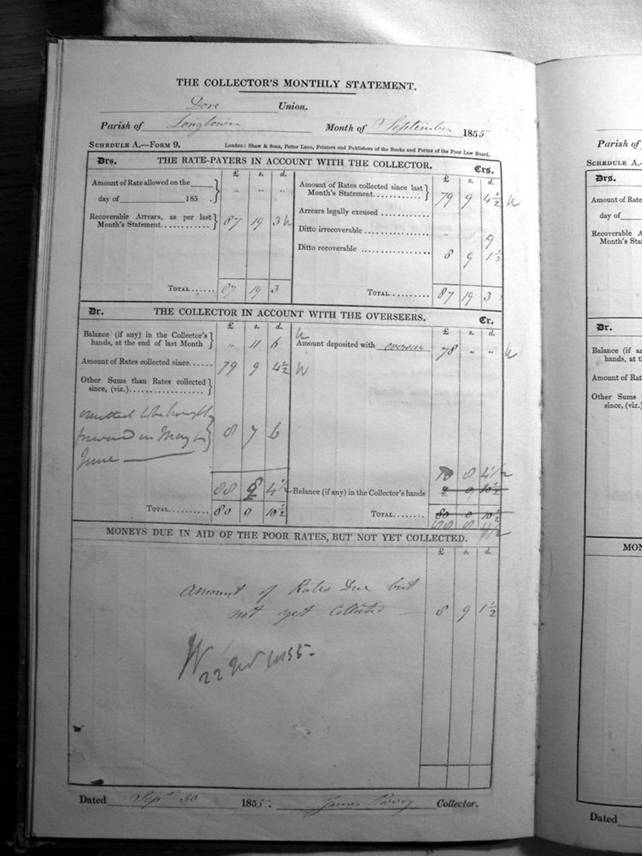 THE COLLECTOR'S MONTHLY STATEMENT.
Dore Union.
Parish of Longtown Month of September 1855
SCHEDULE A.—FORM 9. London: Shaw & Sons, Fetter Lane, Printers and Publishers of the Books and Forms of the Poor Law Board.
Drs. THE RATE-PAYERS IN ACCOUNT WITH THE COLLECTOR. Crs.
£ s. d.
Amount of Rate allowed on the
day of 185 . " " "
Recoverable Arrears, as per last
Month's Statement 87 19 3
TOTAL 87 19 3
£ s. d.
Amount of Rates collected since last
Month's Statement 79 9 4½
Arrears legally excused
Ditto irrecoverable 9
Ditto recoverable 8 9 1½
TOTAL 87 19 3
Dr. THE COLLECTOR IN ACCOUNT WITH THE OVERSEERS. Cr.
£ s. d.
Balance (if any) in the Collector's
hands, at the end of last Month " 11 6
Amount of Rates collected since 79 9 4½
Other Sums than Rates collected
since, (viz.)
omitted to be brought
forward in May &
June 8 7 6
88 8 4½
TOTAL 80 0 10½
£ s. d.
Amount deposited with overseer 78 " "
10 8 4½
Balance (if any) in the Collector's hands 2 0 10½
TOTAL 80 0 10½
88 8 4½
MONEYS DUE IN AID OF THE POOR RATES, BUT NOT YET COLLECTED.
£ s. d.
Amount of Rates Due but
not yet Collected 8 9 1½
1855.
Dated Sept 30 1855. James Collector.
Parish of
SCHEDULE A.
Drs.
Amount of Rate
day of
Recoverable
Month's Stat
Dr.
Balance (if any)
hands, at th
Amount of Rat
Other Sums
since, (viz.)
MON
Dated